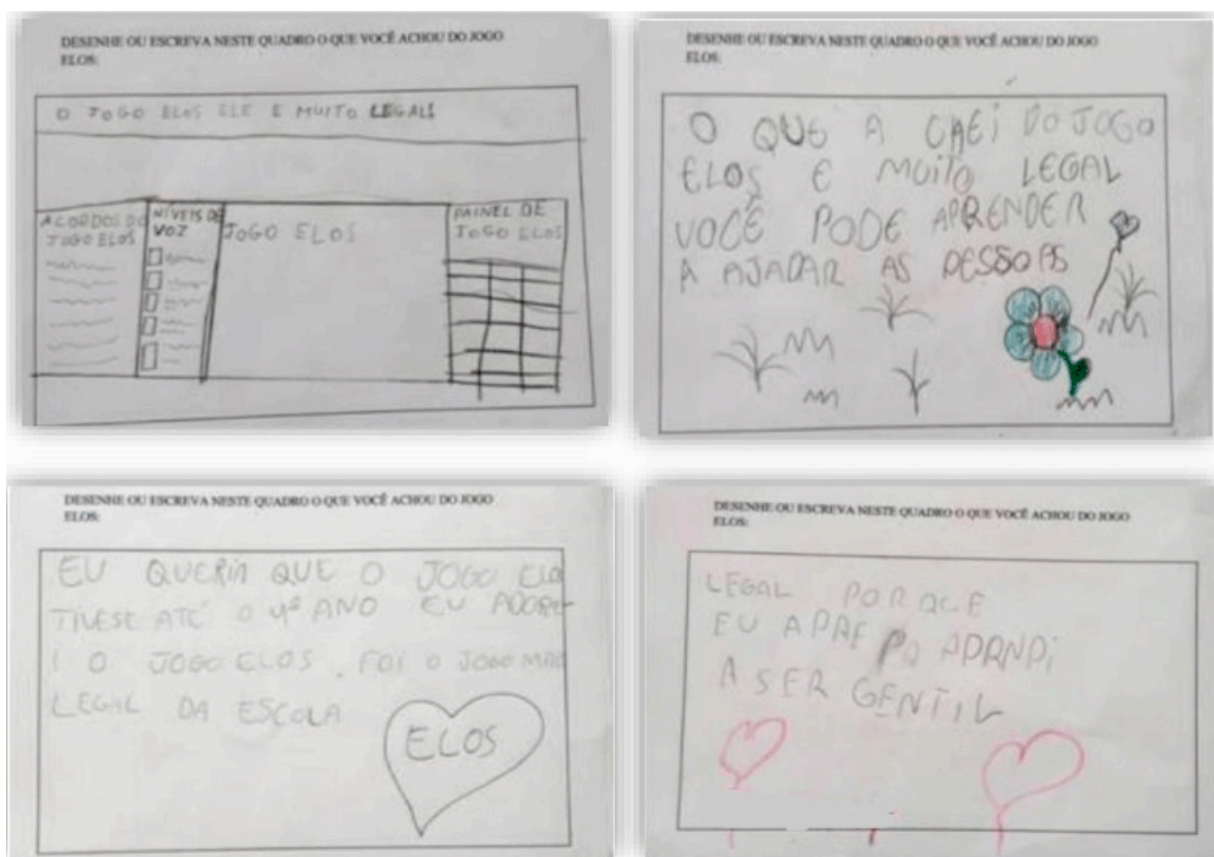 DESENHE OU ESCREVA NESTE QUADRO O QUE VOCÊ ACHOU DO JOGO
ELOS:
O JOGO ELOS ELE E MUITO LEGAL!
ACORDOS DO
JOGO ELOS
NÍVEIS DE
VOZ
JOGO ELOS
PAINEL DE
JOGO ELOS
DESENHE OU ESCREVA NESTE QUADRO O QUE VOCÊ ACHOU DO JOGO
ELOS:
O QUE A CHEI DO JOGO
ELOS E MUITO LEGAL
VOCÊ PODE APRENDER
A AJADAR AS PESSOAS
DESENHE OU ESCREVA NESTE QUADRO O QUE VOCÊ ACHOU DO JOGO
ELOS:
EU QUERIA QUE O JOGO ELO
TIVESE ATÉ O 4º ANO EU ADORE
I O JOGO ELOS . FOI O JOGO MAI
LEGAL DA ESCOLA
ELOS
DESENHE OU ESCREVA NESTE QUADRO O QUE VOCÊ ACHOU DO JOGO
ELOS:
LEGAL PORQUE
EU APAE PO APRNDI
A SER GENTIL